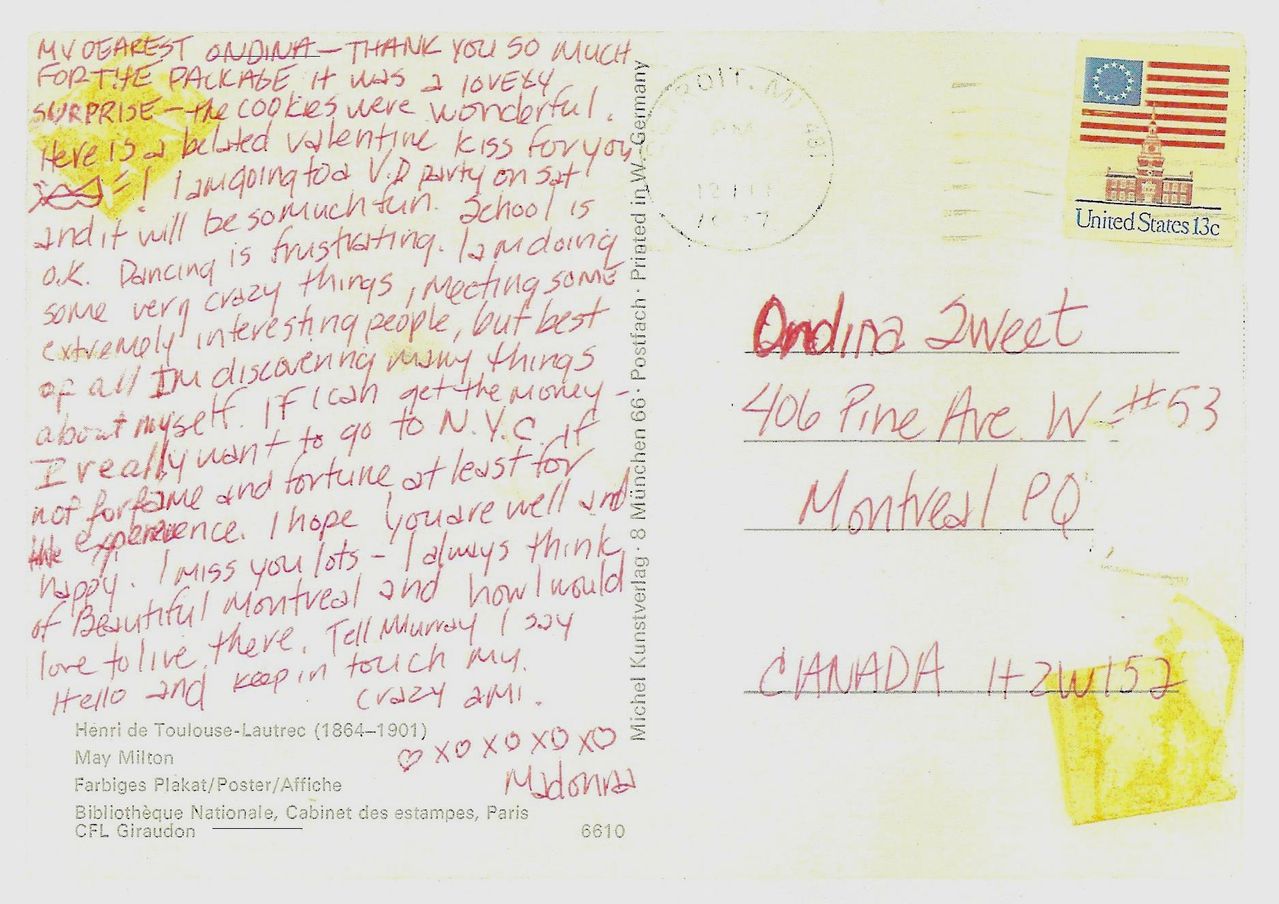 MY DEAREST ONDINA — THANK YOU SO MUCH
FOR THE PACKAGE IT WAS a lovely
SURPRISE — the cookies were wonderful.
Here is a belated valentine kiss for you
! I am going to a V.D party on Sat
and it will be so much fun. School is
o.k. Dancing is frustrating. I am doing
some very crazy things, meeting some
extremely interesting people, but best
of all Im discovering many things
about myself. If I can get the money –
I really want to go to N.Y.C. if
not for fame and fortune at least for
the experience. I hope you are well and
happy. I miss you lots – I always think
of Beautiful Montreal and how I would
love to live there. Tell Murray I say
Hello and keep in touch my
crazy ami.
♡ X♡ X♡ X♡ X♡
Madonna
Henri de Toulouse-Lautrec (1864–1901)
May Milton
Farbiges Plakat/Poster/Affiche
Bibliothèque Nationale, Cabinet des estampes, Paris
CFL Giraudon
6610
Michel Kunstverlag · 8 München 66 · Postfach · Printed in W.-Germany
OIT, MI 481
PM
United States 13c
Ondina Sweet
406 Pine Ave. W #53
Montreal PQ
CANADA H2W1S2